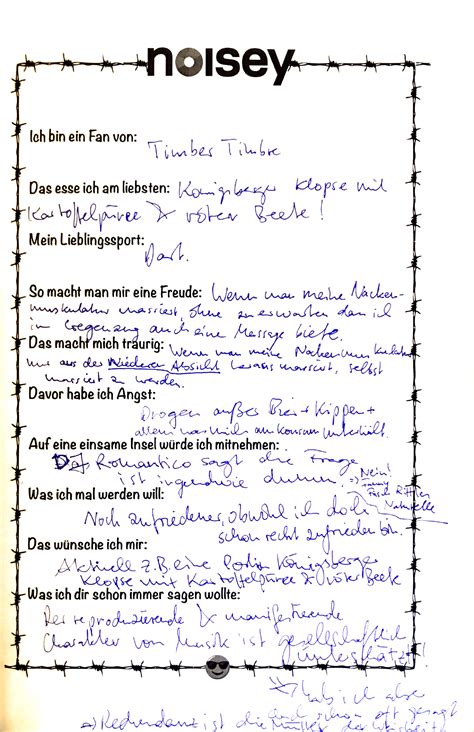 noisey
Ich bin ein Fan von:
Timber Timbre
Das esse ich am liebsten: Königsberger Klopse mit
Kartoffelpüree & roter Beete!
Mein Lieblingssport:
Dart.
So macht man mir eine Freude: Wenn man meine Nacken-
muskulatur massiert, ohne zu erwarten dass ich
im Gegenzug auch eine Massage biete.
Das macht mich traurig: Wenn man meine Nackenmuskulatur
nur aus der Niederen Absicht heraus massiert, selbst
massiert zu werden.
Davor habe ich Angst:
Drogen außer Bier + Kippen +
allem was mich am Konsum unterhält.
Auf eine einsame Insel würde ich mitnehmen:
DJ Romantico sagt die Frage
ist irgendwie dumm. => Nein!
Was ich mal werden will:
Noch zufriedener, obwohl ich doch
schon recht zufrieden bin.
Das wünsche ich mir:
Aktuell z.B. eine Portion Königsberger
Klopse mit Kartoffelpüree & roter Beete
Was ich dir schon immer sagen wollte:
Der reproduzierende & manifestierende
Charakter von Musik ist gesellschaftlich
unterschätzt!
=> hab ich aber
auch schon oft gesagt
=> Redundanz ist die Mutter der Weisheit